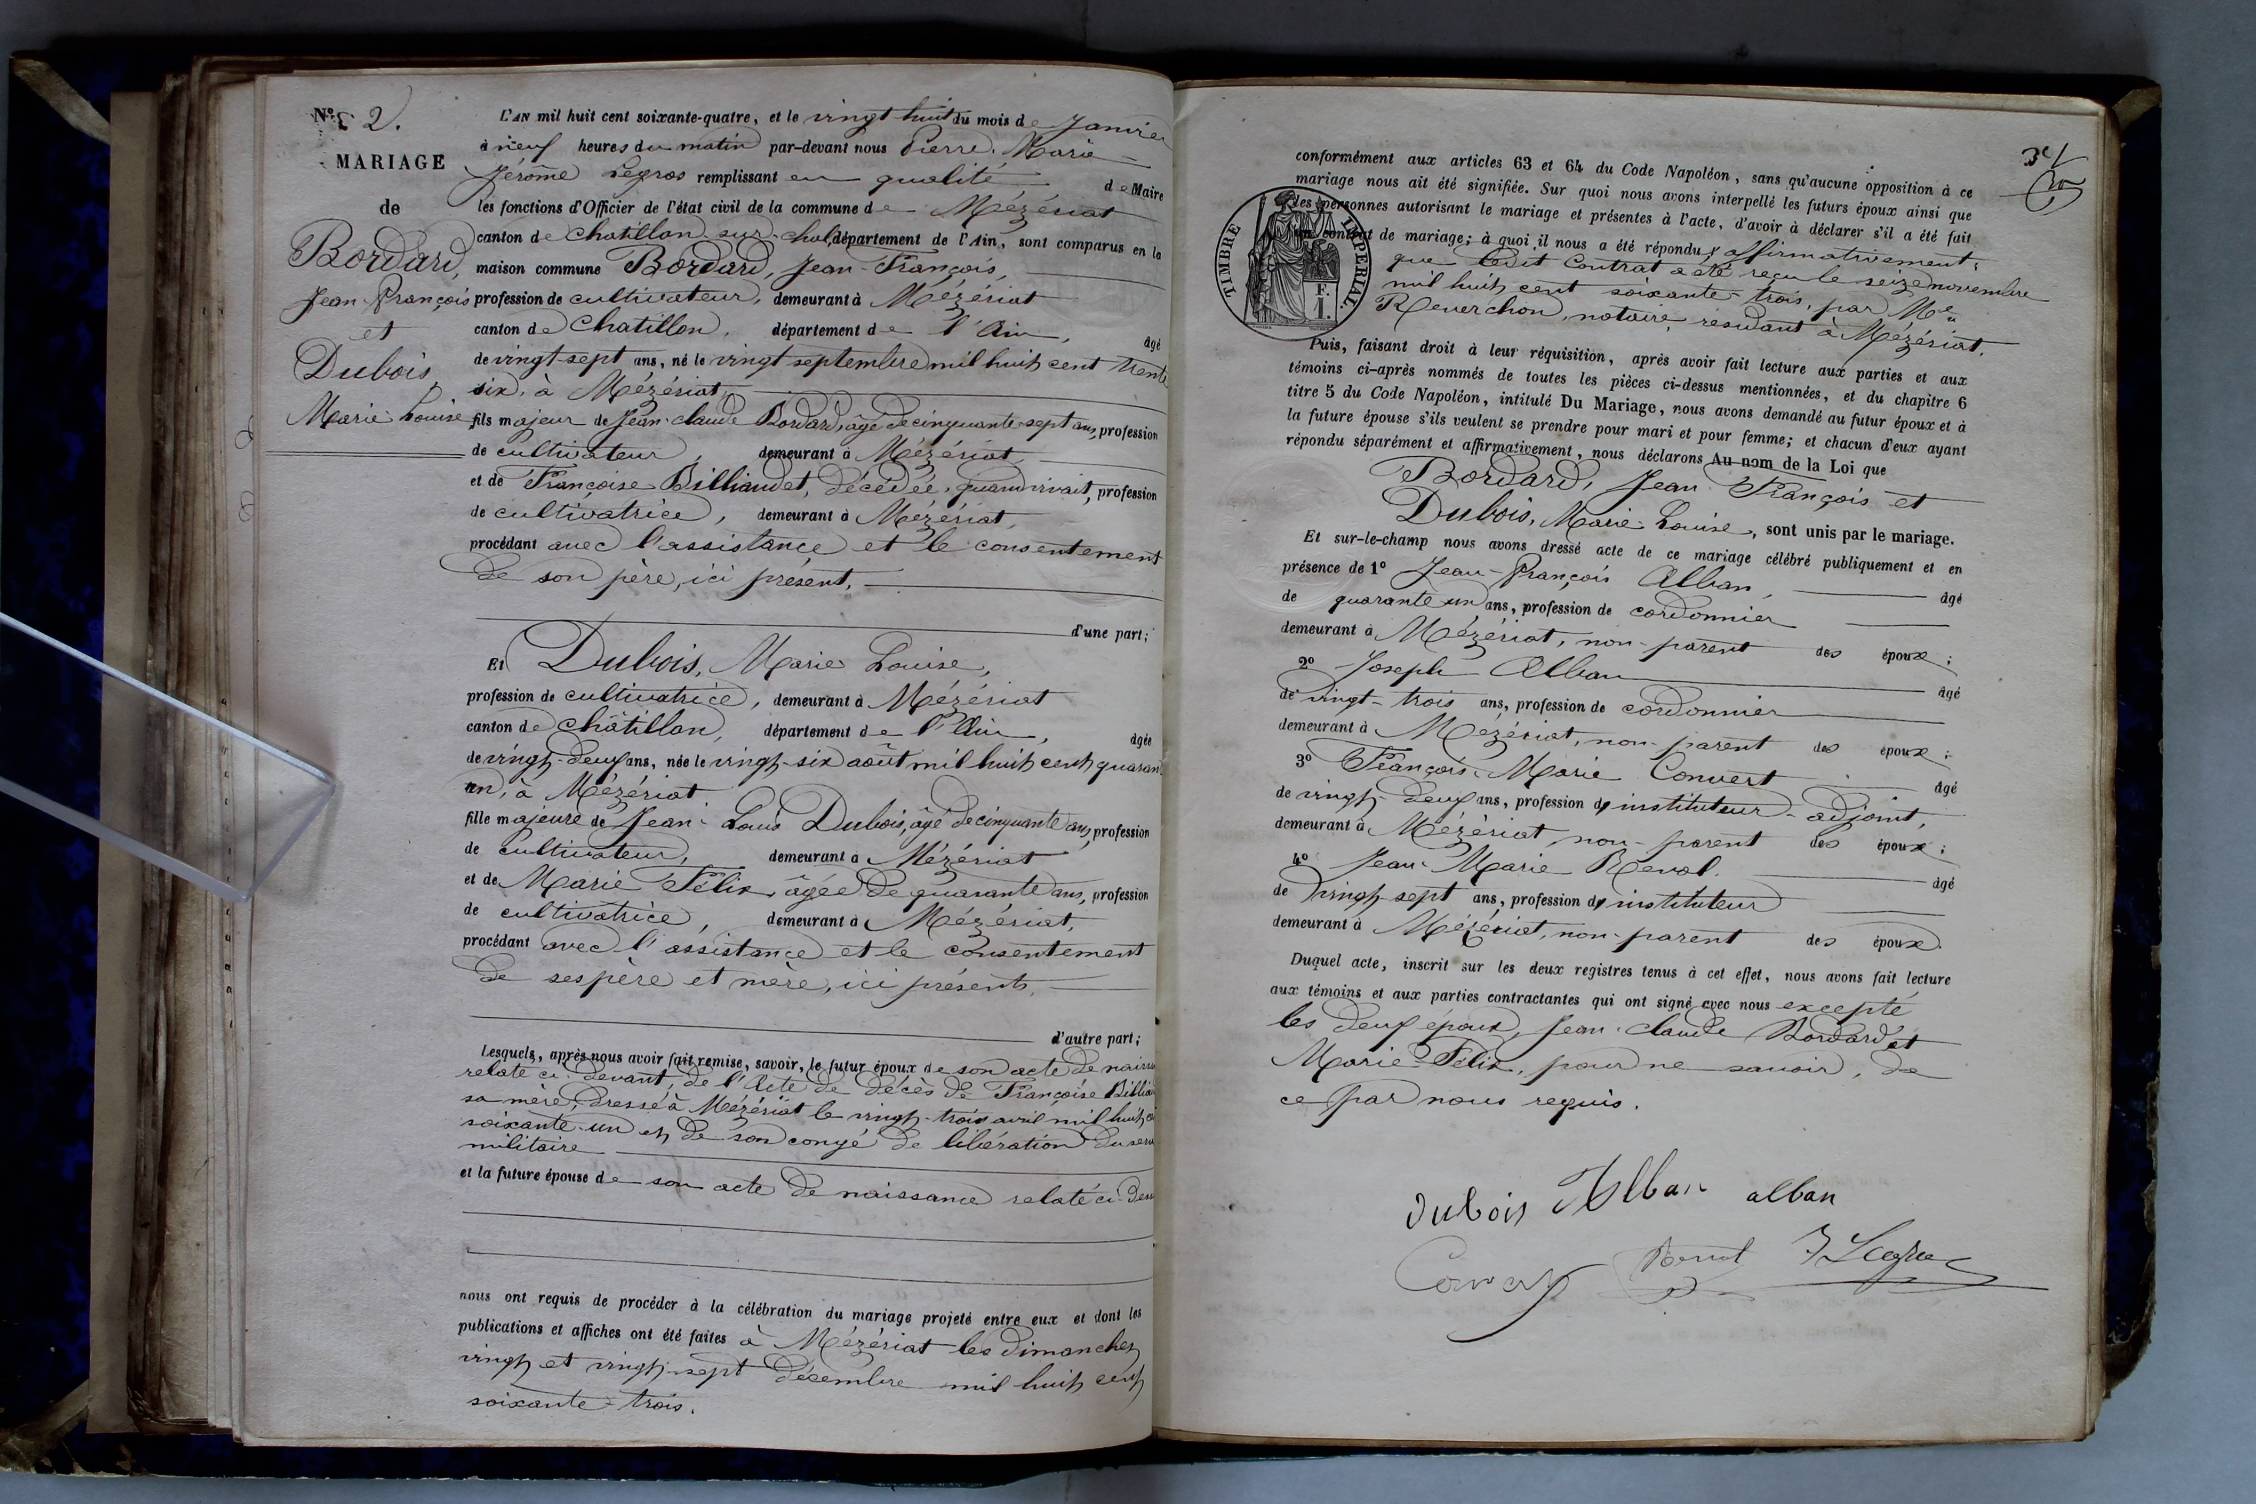 N° 2.
MARIAGE
de
Bordard,
Jean-François
et
Dubois,
Marie Louise
L'AN mil huit cent soixante-quatre, et le vingt huit du mois de Janvier
à neuf heures du matin par-devant nous Pierre Marie
Jérôme Legros remplissant en qualité de Maire
les fonctions d'Officier de l'état civil de la commune de Mézériat
canton de Chatillon-sur-Chal. département de l'Ain, sont comparus en la
maison commune Bordard, Jean-François,
profession de cultivateur, demeurant à Mézériat
canton de Chatillon, département de l'Ain, âgé
de vingt-sept ans, né le vingt septembre mil huit cent trente
six, à Mézériat,
fils majeur de Jean-claude Bordard, âgé de cinquante-sept ans, profession
de cultivateur, demeurant à Mézériat
et de Françoise Billiaudet, décédée, quand vivait, profession
de cultivatrice, demeurant à Mézériat,
procédant avec l'assistance et le consentement
de son père, ici présent,
d'une part;
Et Dubois, Marie Louise,
profession de cultivatrice, demeurant à Mézériat
canton de Châtillon, département de l'Ain, âgée
de vingt-deux ans, née le vingt-six août mil huit cent quaran
un, à Mézériat
fille majeure de Jean-Louis Dubois, âgé de cinquante ans, profession
de cultivateur, demeurant à Mézériat
et de Marie Félix, âgée de quarante ans, profession
de cultivatrice, demeurant à Mézériat,
procédant avec l'assistance et le consentement
de ses père et mère, ici présents,
d'autre part;
Lesquels, après nous avoir fait remise, savoir, le futur époux de son acte de naiss
relaté ci-devant, de l'Acte de décès de Françoise Billia
sa mère, dressé à Mézériat le vingt-trois avril mil huit c
soixante-un et de son congé de libération du serv
militaire
et la future épouse de son acte de naissance relaté ci-dev
nous ont requis de procéder à la célébration du mariage projeté entre eux et dont les
publications et affiches ont été faites à Mézériat les dimanches
vingt et vingt-sept décembre mil huit cent
soixante-trois.
TIMBRE IMPÉRIAL
F.
1.
conformément aux articles 63 et 64 du Code Napoléon, sans qu'aucune opposition à ce
mariage nous ait été signifiée. Sur quoi nous avons interpellé les futurs époux ainsi que
les personnes autorisant le mariage et présentes à l'acte, d'avoir à déclarer s'il a été fait
un contrat de mariage; à quoi il nous a été répondu affirmativement;
que ledit Contrat a été reçu le seize novembre
mil huit cent soixante-trois, par Me
Reverchon, notaire résidant à Mézériat.
Puis, faisant droit à leur réquisition, après avoir fait lecture aux parties et aux
témoins ci-après nommés de toutes les pièces ci-dessus mentionnées, et du chapitre 6
titre 5 du Code Napoléon, intitulé Du Mariage, nous avons demandé au futur époux et à
la future épouse s'ils veulent se prendre pour mari et pour femme; et chacun d'eux ayant
répondu séparément et affirmativement, nous déclarons Au nom de la Loi que
Bordard, Jean François et
Dubois, Marie-Louise, sont unis par le mariage.
Et sur-le-champ nous avons dressé acte de ce mariage célébré publiquement et en
présence de 1° Jean-François Alban, âgé
de quarante un ans, profession de cordonnier
demeurant à Mézériat, non-parent des époux;
2° Joseph Alban âgé
de vingt-trois ans, profession de cordonnier
demeurant à Mézériat, non-parent des époux;
3° François-Marie Convert âgé
de vingt-deux ans, profession d'instituteur-adjoint,
demeurant à Mézériat, non-parent des époux;
4° Jean-Marie Renol. âgé
de vingt-sept ans, profession d'instituteur
demeurant à Mézériat, non-parent des époux.
Duquel acte, inscrit sur les deux registres tenus à cet effet, nous avons fait lecture
aux témoins et aux parties contractantes qui ont signé avec nous excepté
les deux époux, Jean-claude Bordard et
Marie Félix, pour ne savoir, de
ce par nous requis.
Dubois Alban alban
Convert Renol J Legros